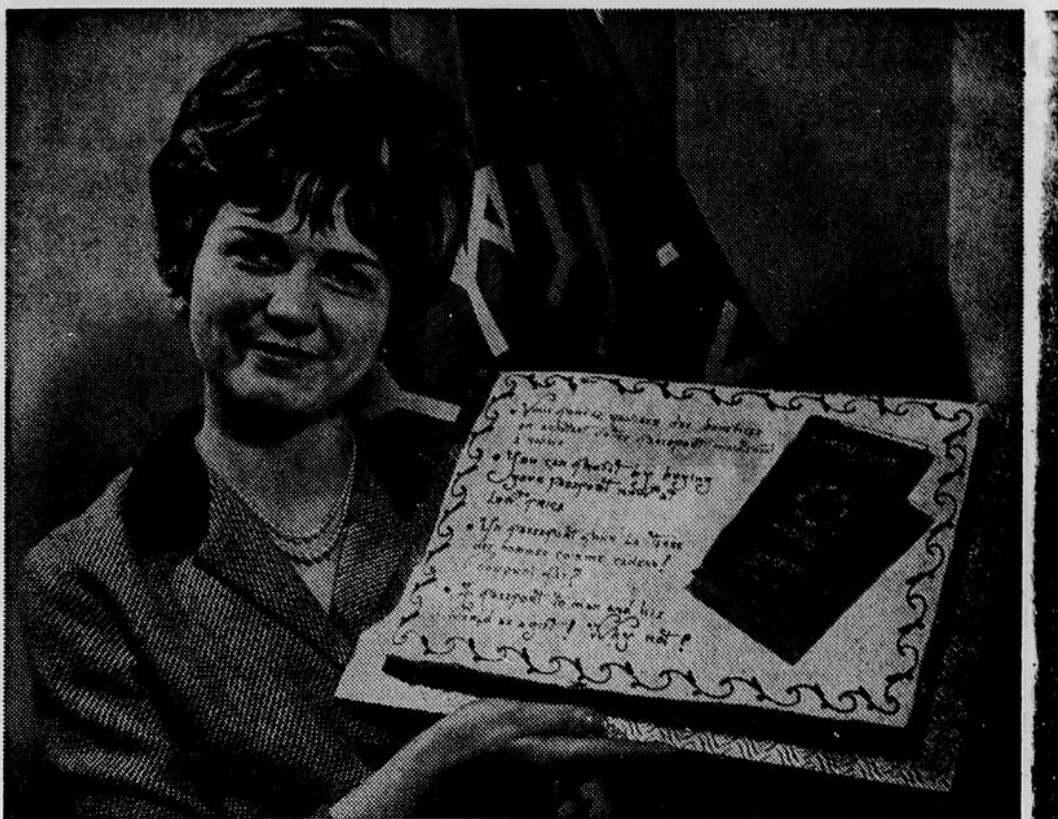 • Vous pouvez des bénéfices
et acheter votre passeport maintenant
• You can profit by buying
your passport now at
low price
• Un passeport pour la Terre
des hommes comme cadeau?
pourquoi pas?
• A passport to man and his
world as a gift? Why not?